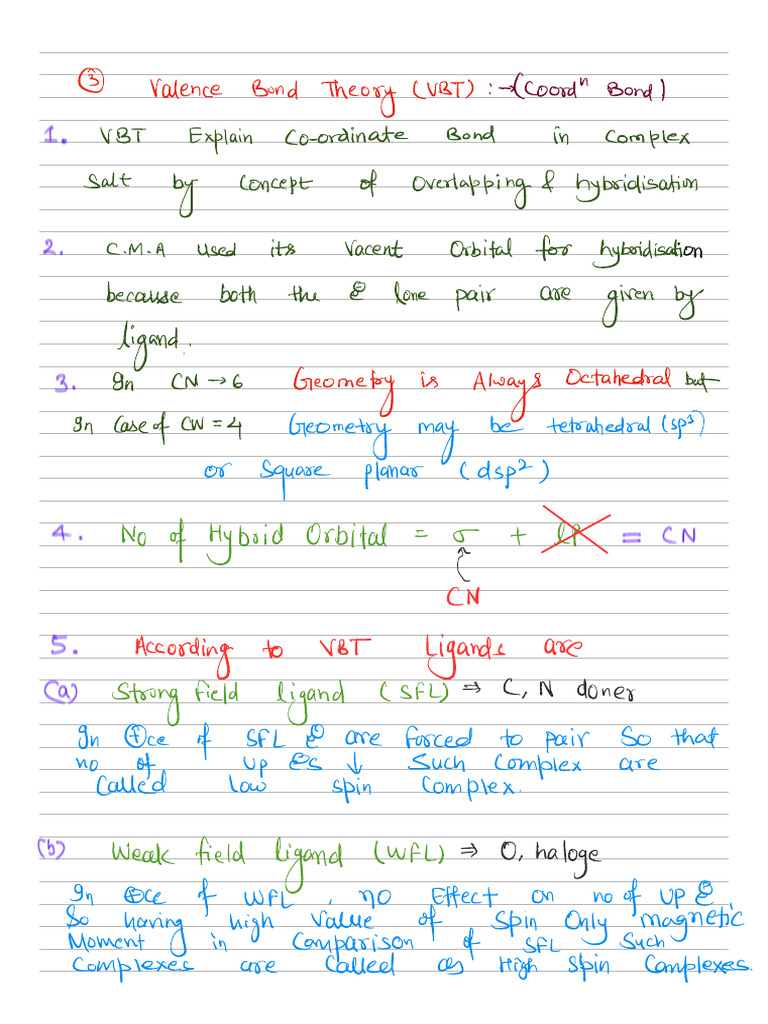 ③ Valence Bond Theory (VBT) : → (Coordⁿ Bond)
1. VBT Explain Co-ordinate Bond in Complex
Salt by Concept of Overlapping & hybridisation
2. C.M.A used its Vacent Orbital for hybridisation
because both the e lone pair are given by
ligand.
3. In CN → 6 Geometry is Always Octahedral but
In Case of CN = 4 Geometry may be tetrahedral (sp³)
or Square planar (dsp²)
4. No of Hybrid Orbital = σ + lP = CN
CN
5. According to VBT Ligands are
(a) Strong field ligand (SFL) ⇒ C, N doner
In ⊕ce of SFL e are forced to pair So that
no of up es ↓ Such Complex are
Called low spin Complex.
(b) Weak field ligand (WFL) ⇒ O, haloge
In ⊕ce of WFL, no Effect on no of up e
So having high Value of Spin Only magnetic
Moment in Comparison of SFL Such
Complexes are Called as High Spin Complexes.